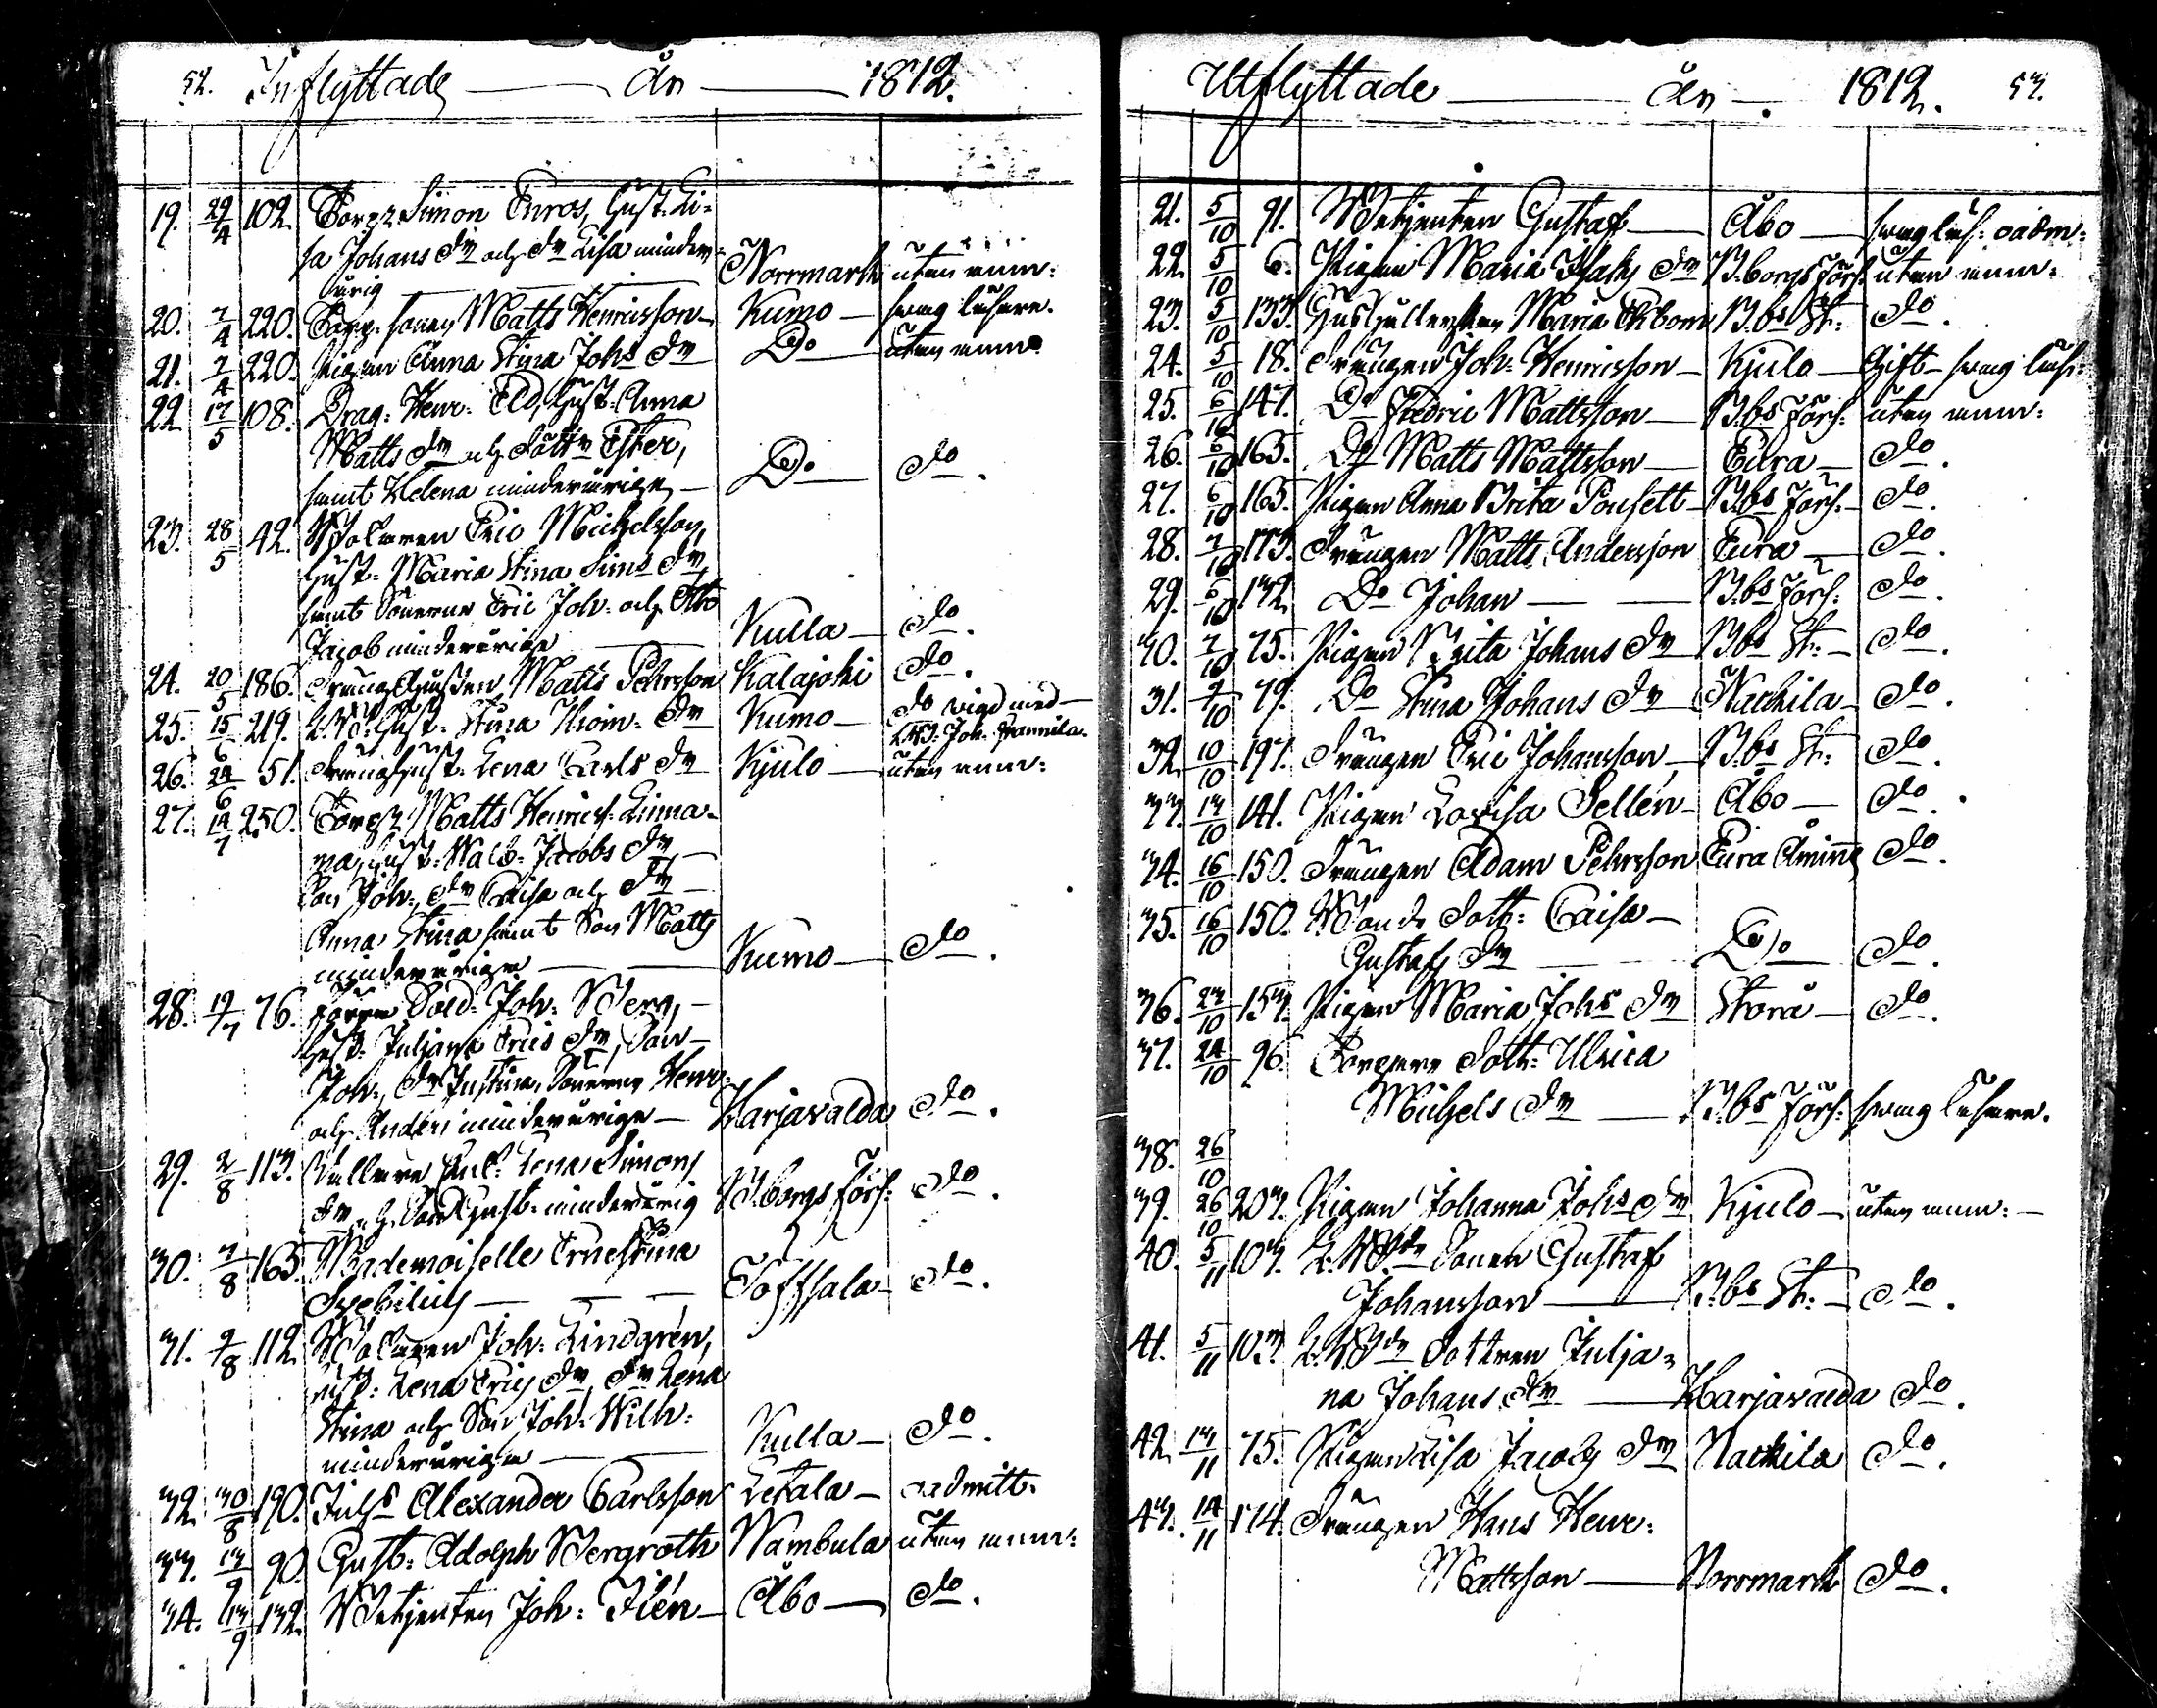 52. Inflyttade År 1812.
19. 29/4 102. Torp:r Simon Euros, Hust: Li-
sa Johans dr och dr Lisa minder-
årig Norrmark utan anm:
20. 7/4 220. Torp: sonen Matts Henricsson Kumo svag läsare.
21. 7/4 220. Pigan Anna Stina Johs dr Do utan anm:
22. 17/5 108. Drag: Henr: Eld, Hust: Anna
Matts dr och döttr Ester,
samt Helena minderårige Do do.
23. 28/5 42. Wolaren Eric Michelsson,
Hust: Maria Stina Sims dr,
samt Sönerne Eric Joh: och
Jacob minderårige Kulla do.
24. 20/5 186. Matts Pehrsson Kalajoki do.
25. 15/6 219. Hust: Stina Thom: dr Kumo do vigd med
Joh:
26. 24/6 51. Lena Carls dr Kjulo utan anm:
27. 14/7 250. Torp:r Matts Henrics: Linna-
ma, Hust: Walb: Jacobs dr
Son Joh:, dr Caisa och dr
Anna Stina samt Son Matts
minderårige Kumo do.
28. 19/7 76. Förre Sold: Joh: Berg,
Hust: Juliana Erics dr, Son
Joh:, dr Justina, Sönerne Henr:
och Anders minderårige Harjavalda do.
29. 2/8 113. Lena Simons
dr och Son Gust: minderårig B:borgs förs: do.
30. 7/8 165. Mademoiselle Ernestina
Svebilius Toffsala do.
31. 9/8 112. Wolaren Joh: Lindgrén,
Hust: Lena Erics dr, dr Lena
Stina och Son Joh: Wilh:
minderårige Kulla do.
32. 30/8 190. Alexander Carlsson Letala oadmitt.
33. 13/9 90. Gust: Adolph Bergroth Wambula utan anm:
34. 13/9 132. Betjenten Joh: Ilén Åbo do.
Utflyttade År 1812. 53.
21. 5/10 91. Betjenten Gustaf Åbo svag läs: oadm:
22. 5/10 6. Pigan Maria Isaks dr B:borgs förs: utan anm:
23. 5/10 133. Hushållerskan Maria Ekbom B:bs St: do.
24. 5/10 18. Drängen Joh: Henricsson Kjulo Gift svag läs:
25. 6/10 147. Do Fredric Mattsson B:bs förs: utan anm:
26. 6/10 165. Do Matts Mattsson Eura do.
27. 6/10 165. Pigan Anna Brita Pousett B:bs förs: do.
28. 7/10 173. Drängen Matts Andersson Eura do.
29. 6/10 132. Do Johan B:bs förs: do.
30. 7/10 75. Pigan Brita Johans dr B:bs St: do.
31. 9/10 79. Do Stina Johans dr Nackila do.
32. 10/10 197. Drängen Eric Johansson B:bs St: do.
33. 13/10 141. Pigan Lovisa Sellén Åbo do.
34. 16/10 150. Drängen Adam Pehrsson Eura Åminne do.
35. 16/10 150. Bonde Dottr: Caisa
Gustafs dr Do do.
36. 23/10 153. Pigan Maria Johs dr Storå do.
37. 24/10 96. Torpare Dottr: Ulrica
Michels dr B:bs förs: svag läsare.
38. 26/10
39. 26/10 203. Pigan Johanna Johs dr Kjulo utan anm:
40. 5/11 103. Sonen Gustaf
Johansson B:bs St: do.
41. 5/11 103. Dottren Julja-
na Johans dr Harjavalda do.
42. 13/11 75. Pigan Lisa Jacobs dr Nackila do.
43. 14/11 174. Drängen Hans Henr:
Mattsson Norrmark do.